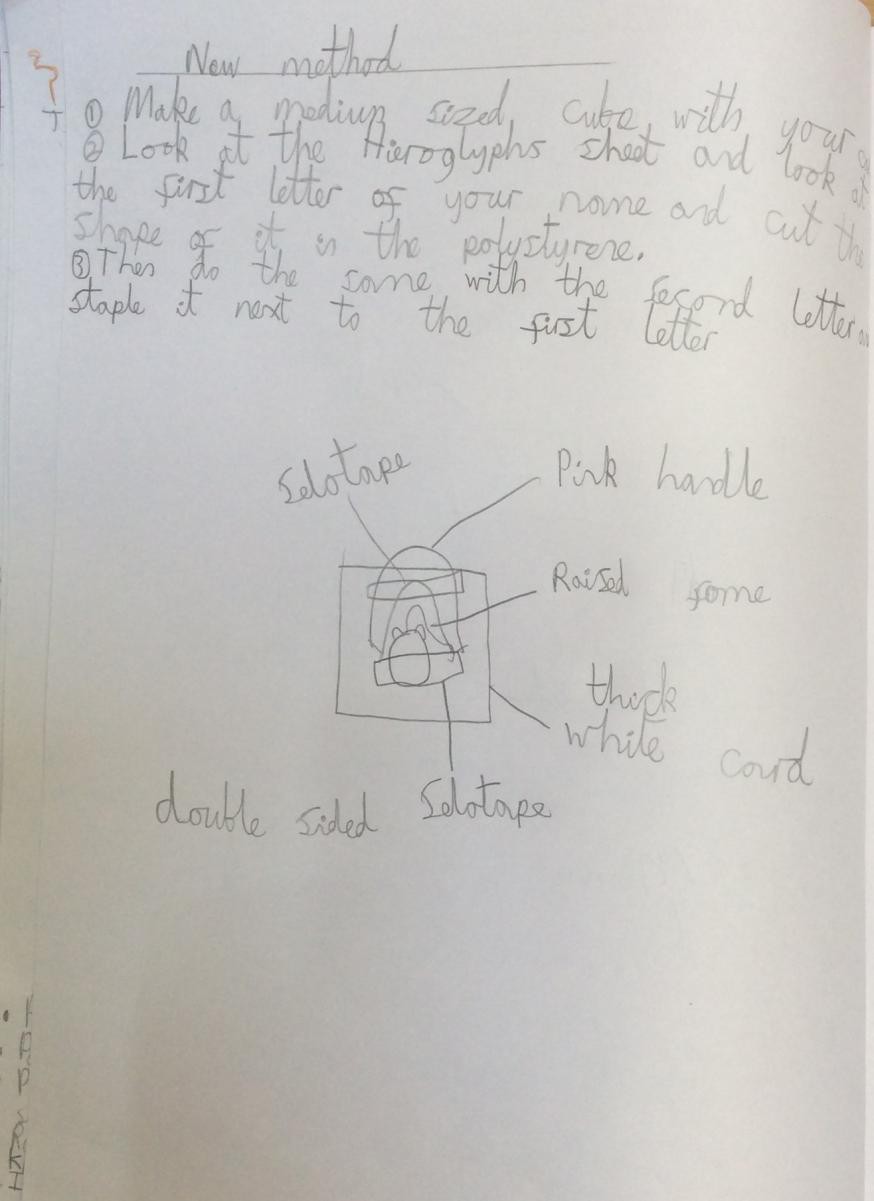 New method
① Make a medium sized cube with your
② Look at the Hieroglyphs sheet and look at
the first letter of your name and cut the
shape of it in the polystyrene.
③ Then do the same with the second letter
staple it next to the first letter
Selotape
Pink handle
Raised fome
thick
white
card
double sided Selotape